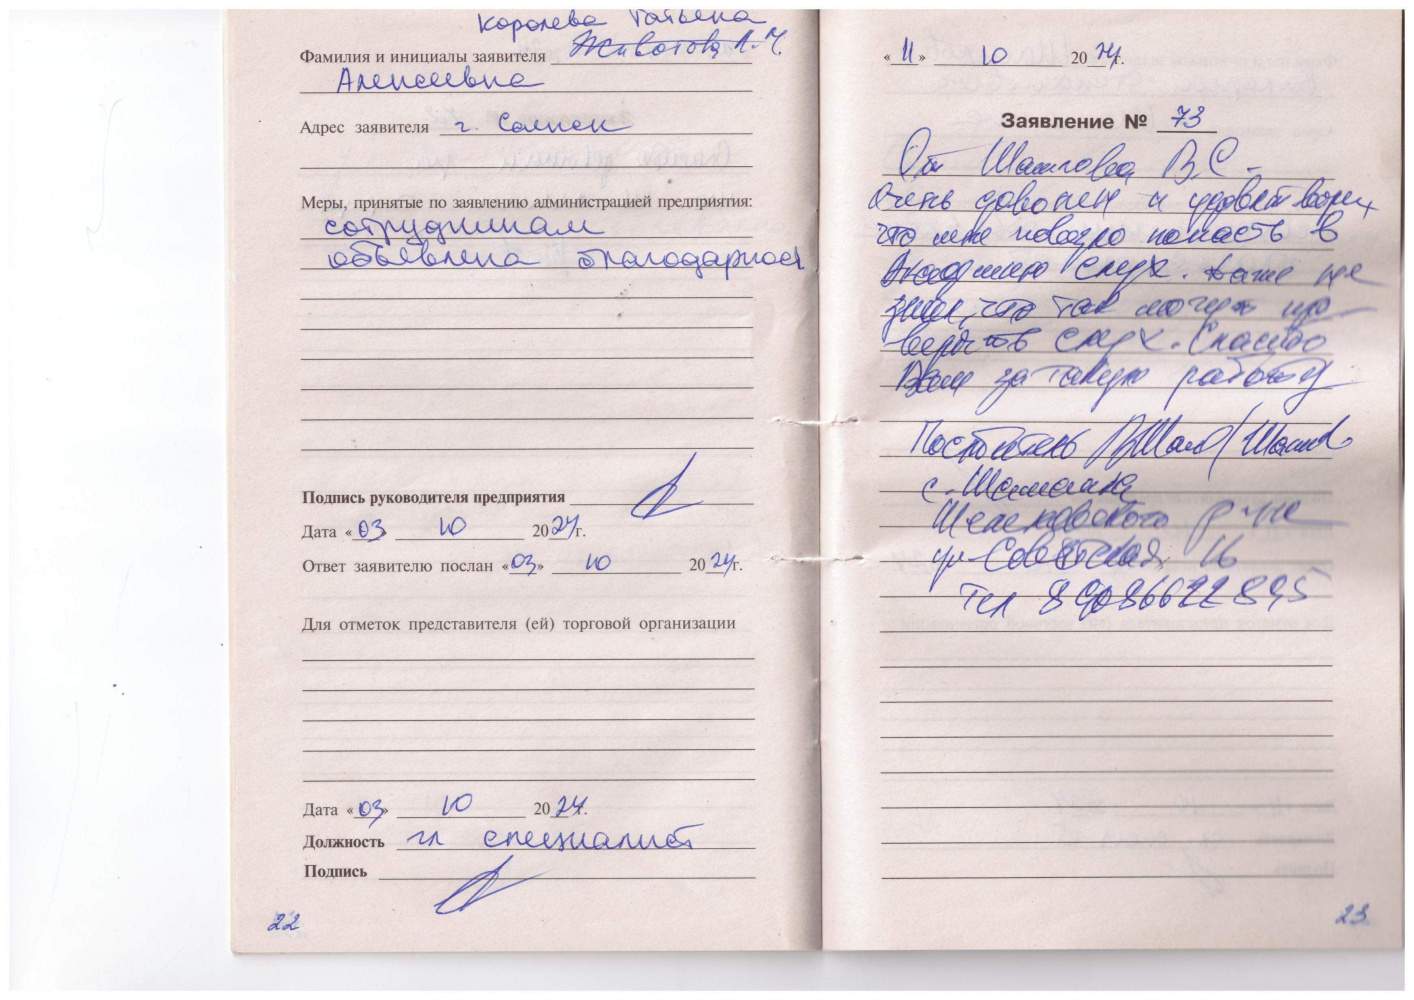 Королева Татьяна
Фамилия и инициалы заявителя Животова Л.Ч.
Алексеевна
Адрес заявителя г.
Меры, принятые по заявлению администрацией предприятия:
сотрудникам
объявлена благодарность
Подпись руководителя предприятия
Дата «03» 10 2024г.
Ответ заявителю послан «03» 10 2024г.
Для отметок представителя (ей) торговой организации
Дата «03» 10 2024г.
Должность гл специалист
Подпись
22
«11» 10 2024г.
Заявление № 73
От В.С.
очень доволен и удовлетворен,
что мне повезло попасть в
Академию слух. Даже не
знал, что так могут про-
верять слух. Спасибо
Вам за такую работу
Посетитель
с. Шаманка
Шелеховского р-на
ул Советская 16
Тел 89086622895
23